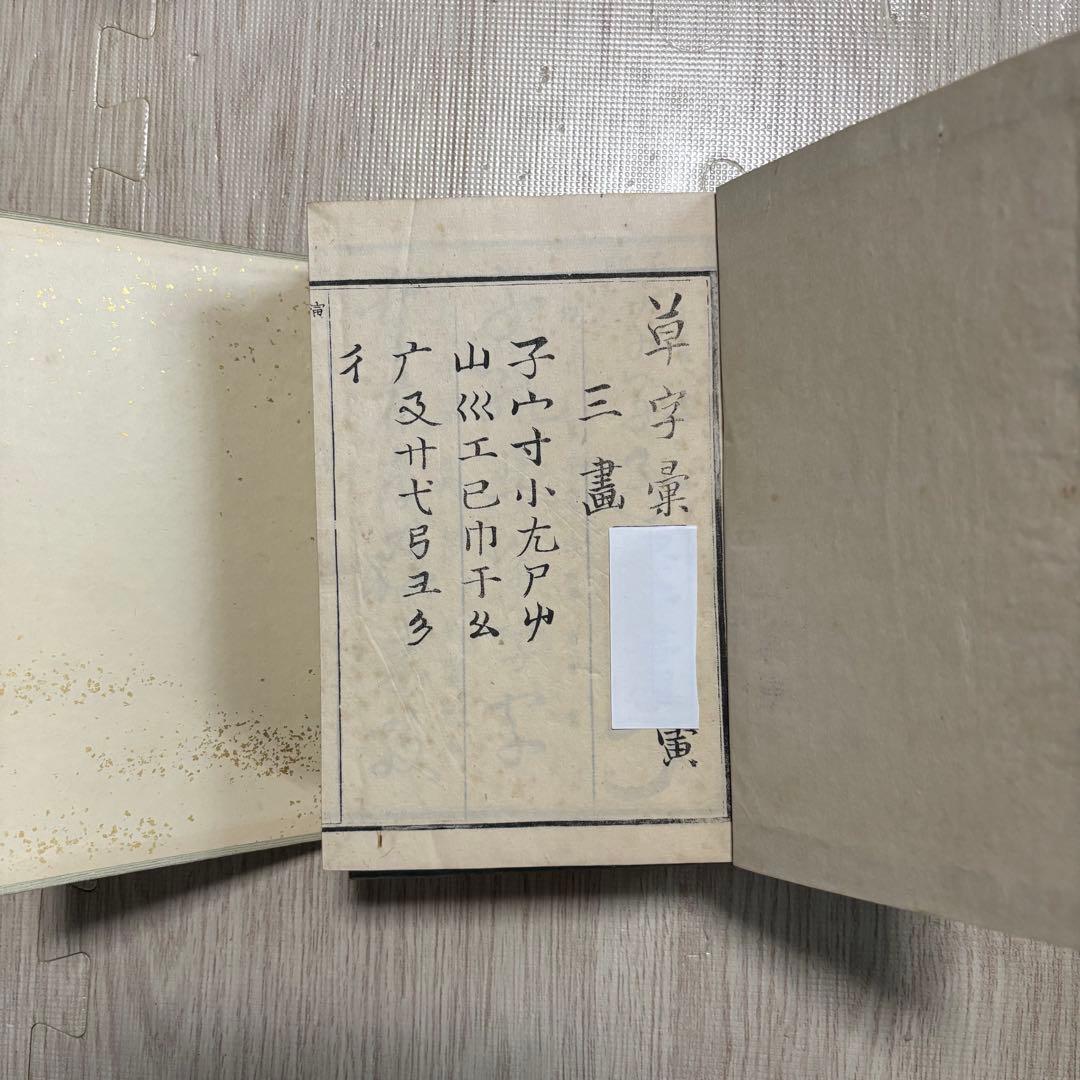 草字彙
寅
三畫
子宀寸小尢尸屮
山巛工已巾干幺
广廴廾弋弓彐彡
彳
寅